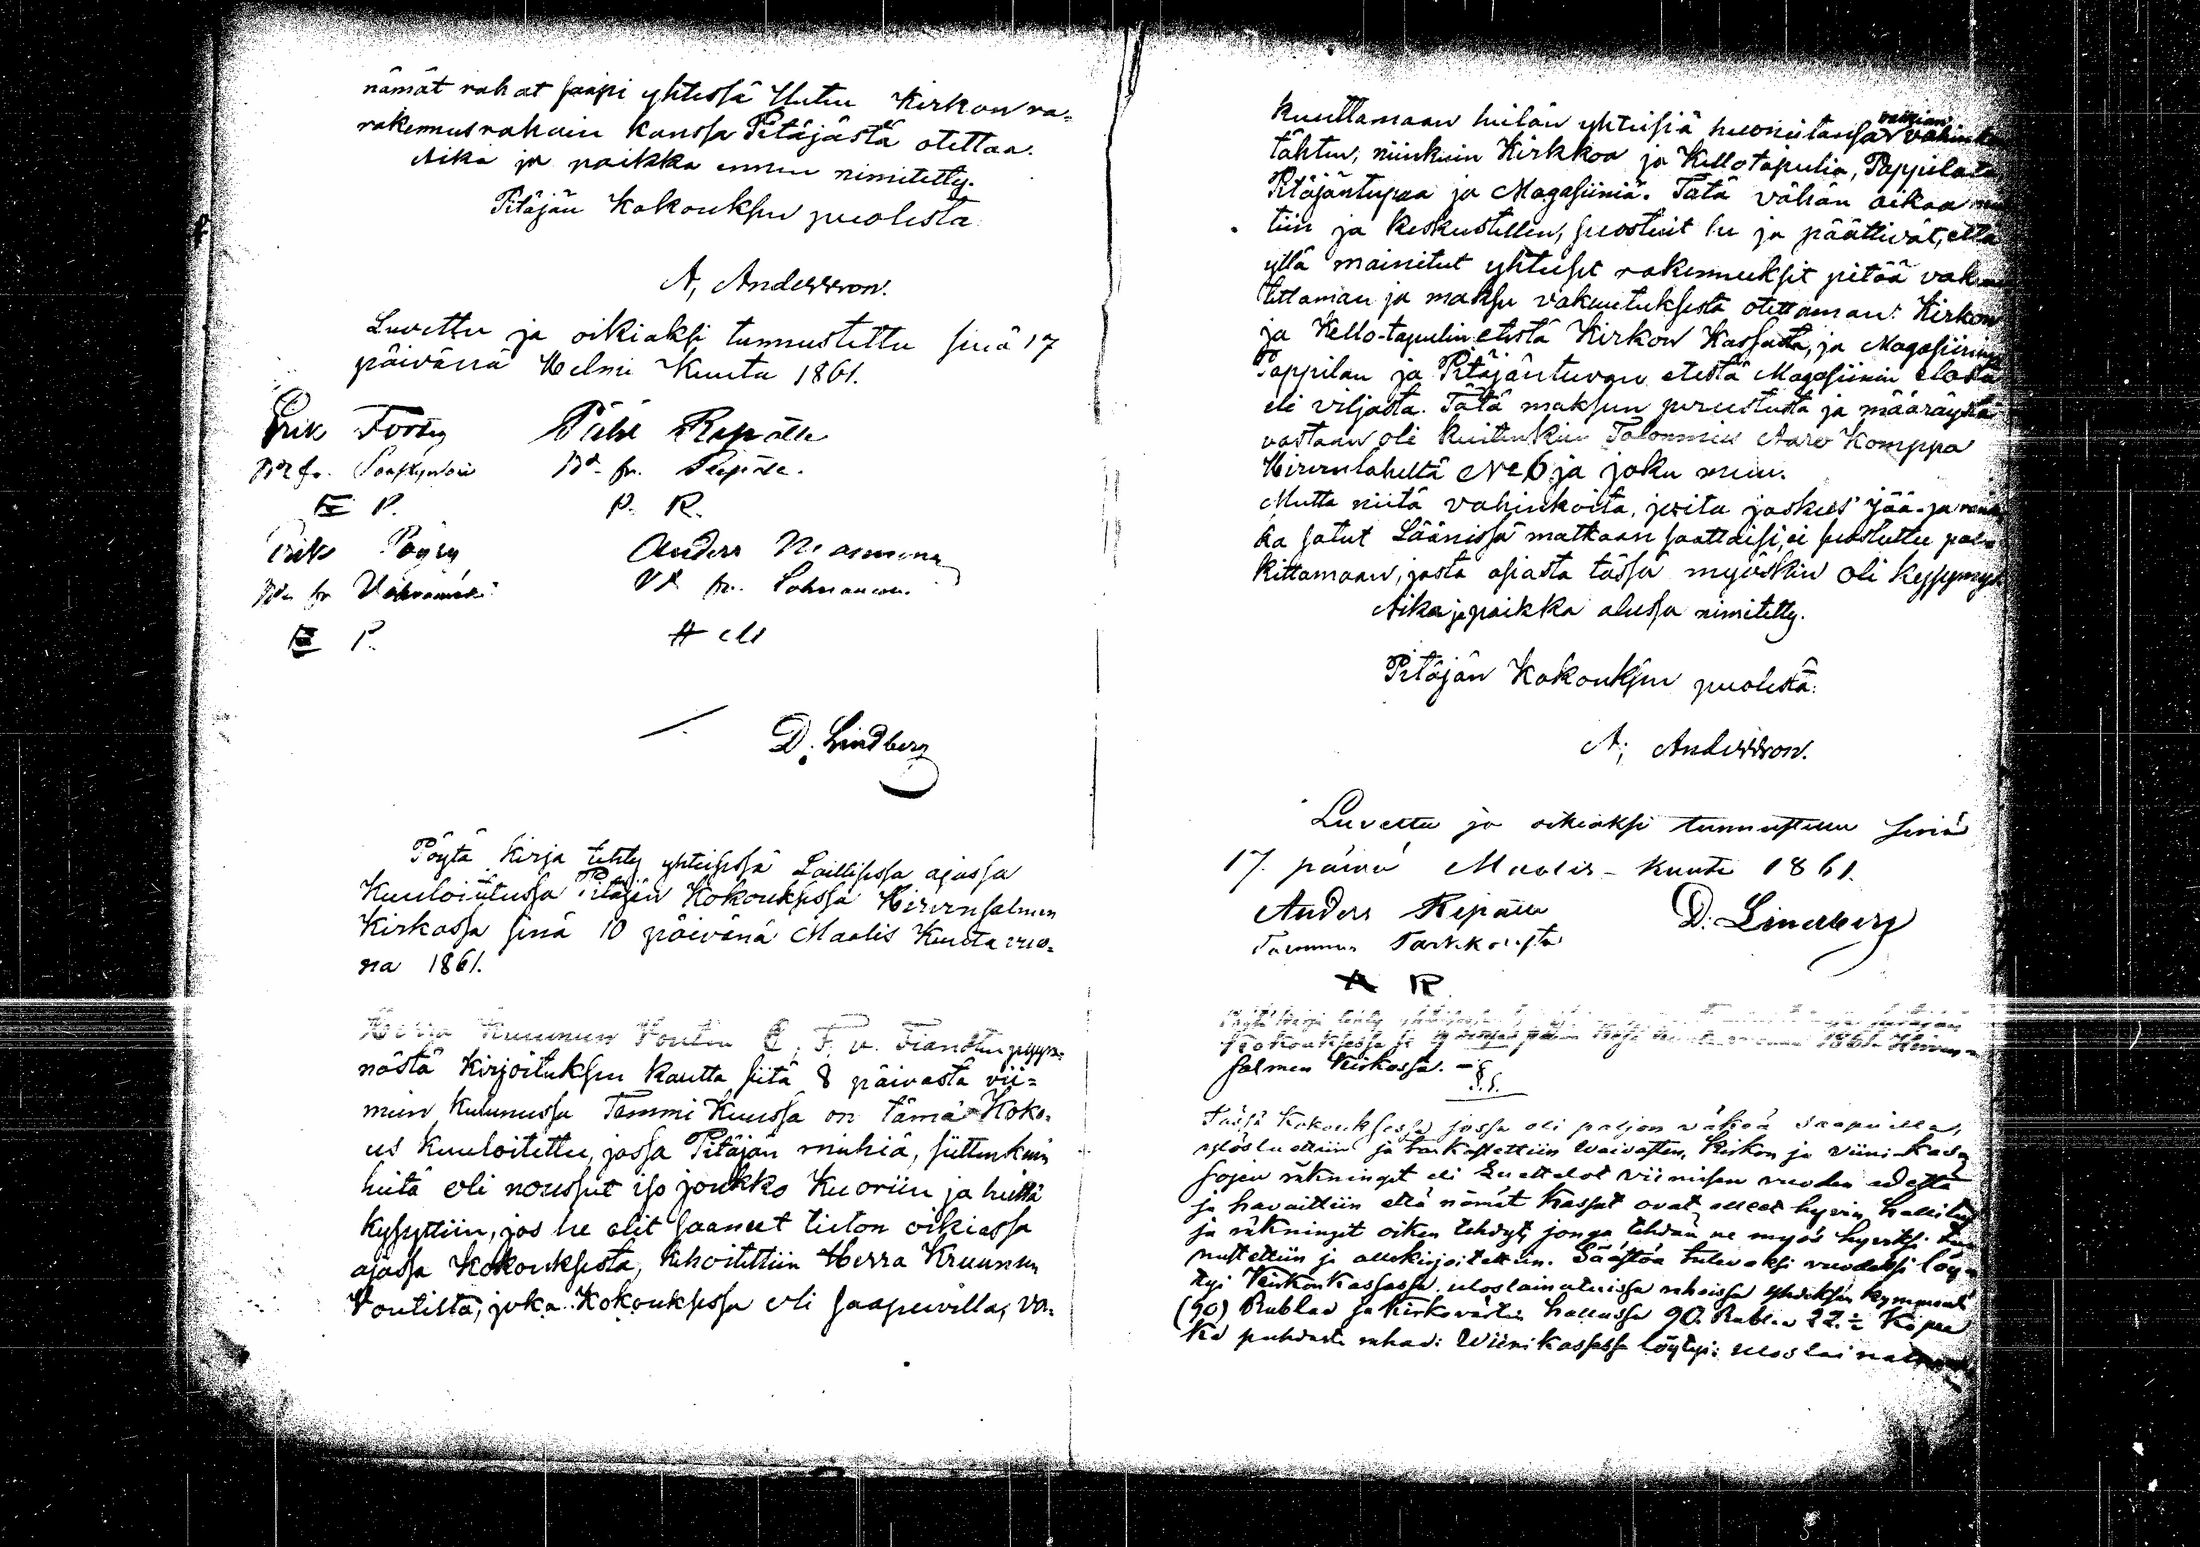 nämät rahat saapi yhtessä Uuten Kirkon ra=
rakennusrahain kanssa Pitäjästä otettaa.
Aika ja paikka ennen nimitetty.
Pitäjän Kokouksen puolesta
A, Andersson.
Luvettu ja oikiaksi tunnustettu sinä 17
päivänä Helmi Kuuta 1861.
Erik
E P.
P. R.
Erik Pöyry
Anders
E P.
D. Lindberg
Pöytä kirja tehty yhteisessä Laillisessa ajassa
Kuuloitetussa Pitäjän Kokouksessa Hirvensalmen
Kirkossa sinä 10 päivänä Maalis Kuuta vuo=
na 1861.
Herra Kruunun Voutin F. v. pyyn=
nöstä Kirjoituksen kautta siitä 8 päivästä vii=
mein kulunussa Tammi Kuussa on tämä Koko=
us kuuloitettu, jossa Pitäjän miehiä, sittenkuin
heitä oli noussut iso joukko Kuoriin ja heittä
kysyttiin, jos he olit saaneet tieton oikiassa
ajassa Kokouksesta, kehoitettiin Herra Kruunun
Voutista, joka Kokouksessa oli saapuvilla, va=
kuuttamaan heitän yhteisiä huoneitansa valkian
tähten, niinkuin Kirkkoa ja Kellotapulia, Pappilata
Pitäjäntupaa ja Magasiiniä. Tätä vähän aikaa
tiin ja keskustellen, suostuit he ja päättivät, että
yllä mainitut yhteiset rakennukset pitää
tettaman ja maksu vakuutuksesta otettaman: Kirkon
ja Kello-tapulin etestä Kirkon Kassasta, ja Magasiinin
Pappilan ja Pitäjäntuvan etestä Magasiinin elosta
eli viljasta. Tätä maksun perustusta ja määräystä
vastaan oli kuitenkin Talonmies Aaro Komppa
Hirvenlaheltä No 6 ja joku muu.
Mutta niitä vahinkoita, joita joskus jää- ja
ka satut Läänissä matkaan saattaisi, ei suostuttu pal=
kittamaan, josta asiasta tässä myöskin oli kysymys
Aika ja paikka alussa nimitetty.
Pitäjän Kokouksen puolesta:
A; Andersson.
Luvettu ja oikiaksi tunnustettu sinä
17. päivä Maalis-kuuta 1861.
Anders Repälle
D. Lindberg
A R
Pöytäkirja tehty
Kokouksessa 1861 Hirven=
salmen Kirkossa. -
§.1.
Tässä Kokouksessa jossa oli paljon väkeä saapuilla,
ylösluettiin ja tarkastettiin Waivasten, Kirkon ja Viini-Kas=
sojen räkningit eli Luettelot viimeisen vuoden edestä
ja havaittiin että nämät kassat ovat olleet hyvin hallitut
ja räkningit oiken tehdyt, jonga tehdän ne myös hyväksi
nustettiin ja allekirjoitettiin. Säästöä tulevaksi vuodeksi löy=
tyi Kirkon Kassassa, uloslainatuissa rahoissa yhdeksän kymmentä
(90) Rublaa ja Kirkovärtin hallussa 90. Rublaa 22.½ Kopee
ka puhdasta rahaa: Wiinikassassa löytyi: uloslai